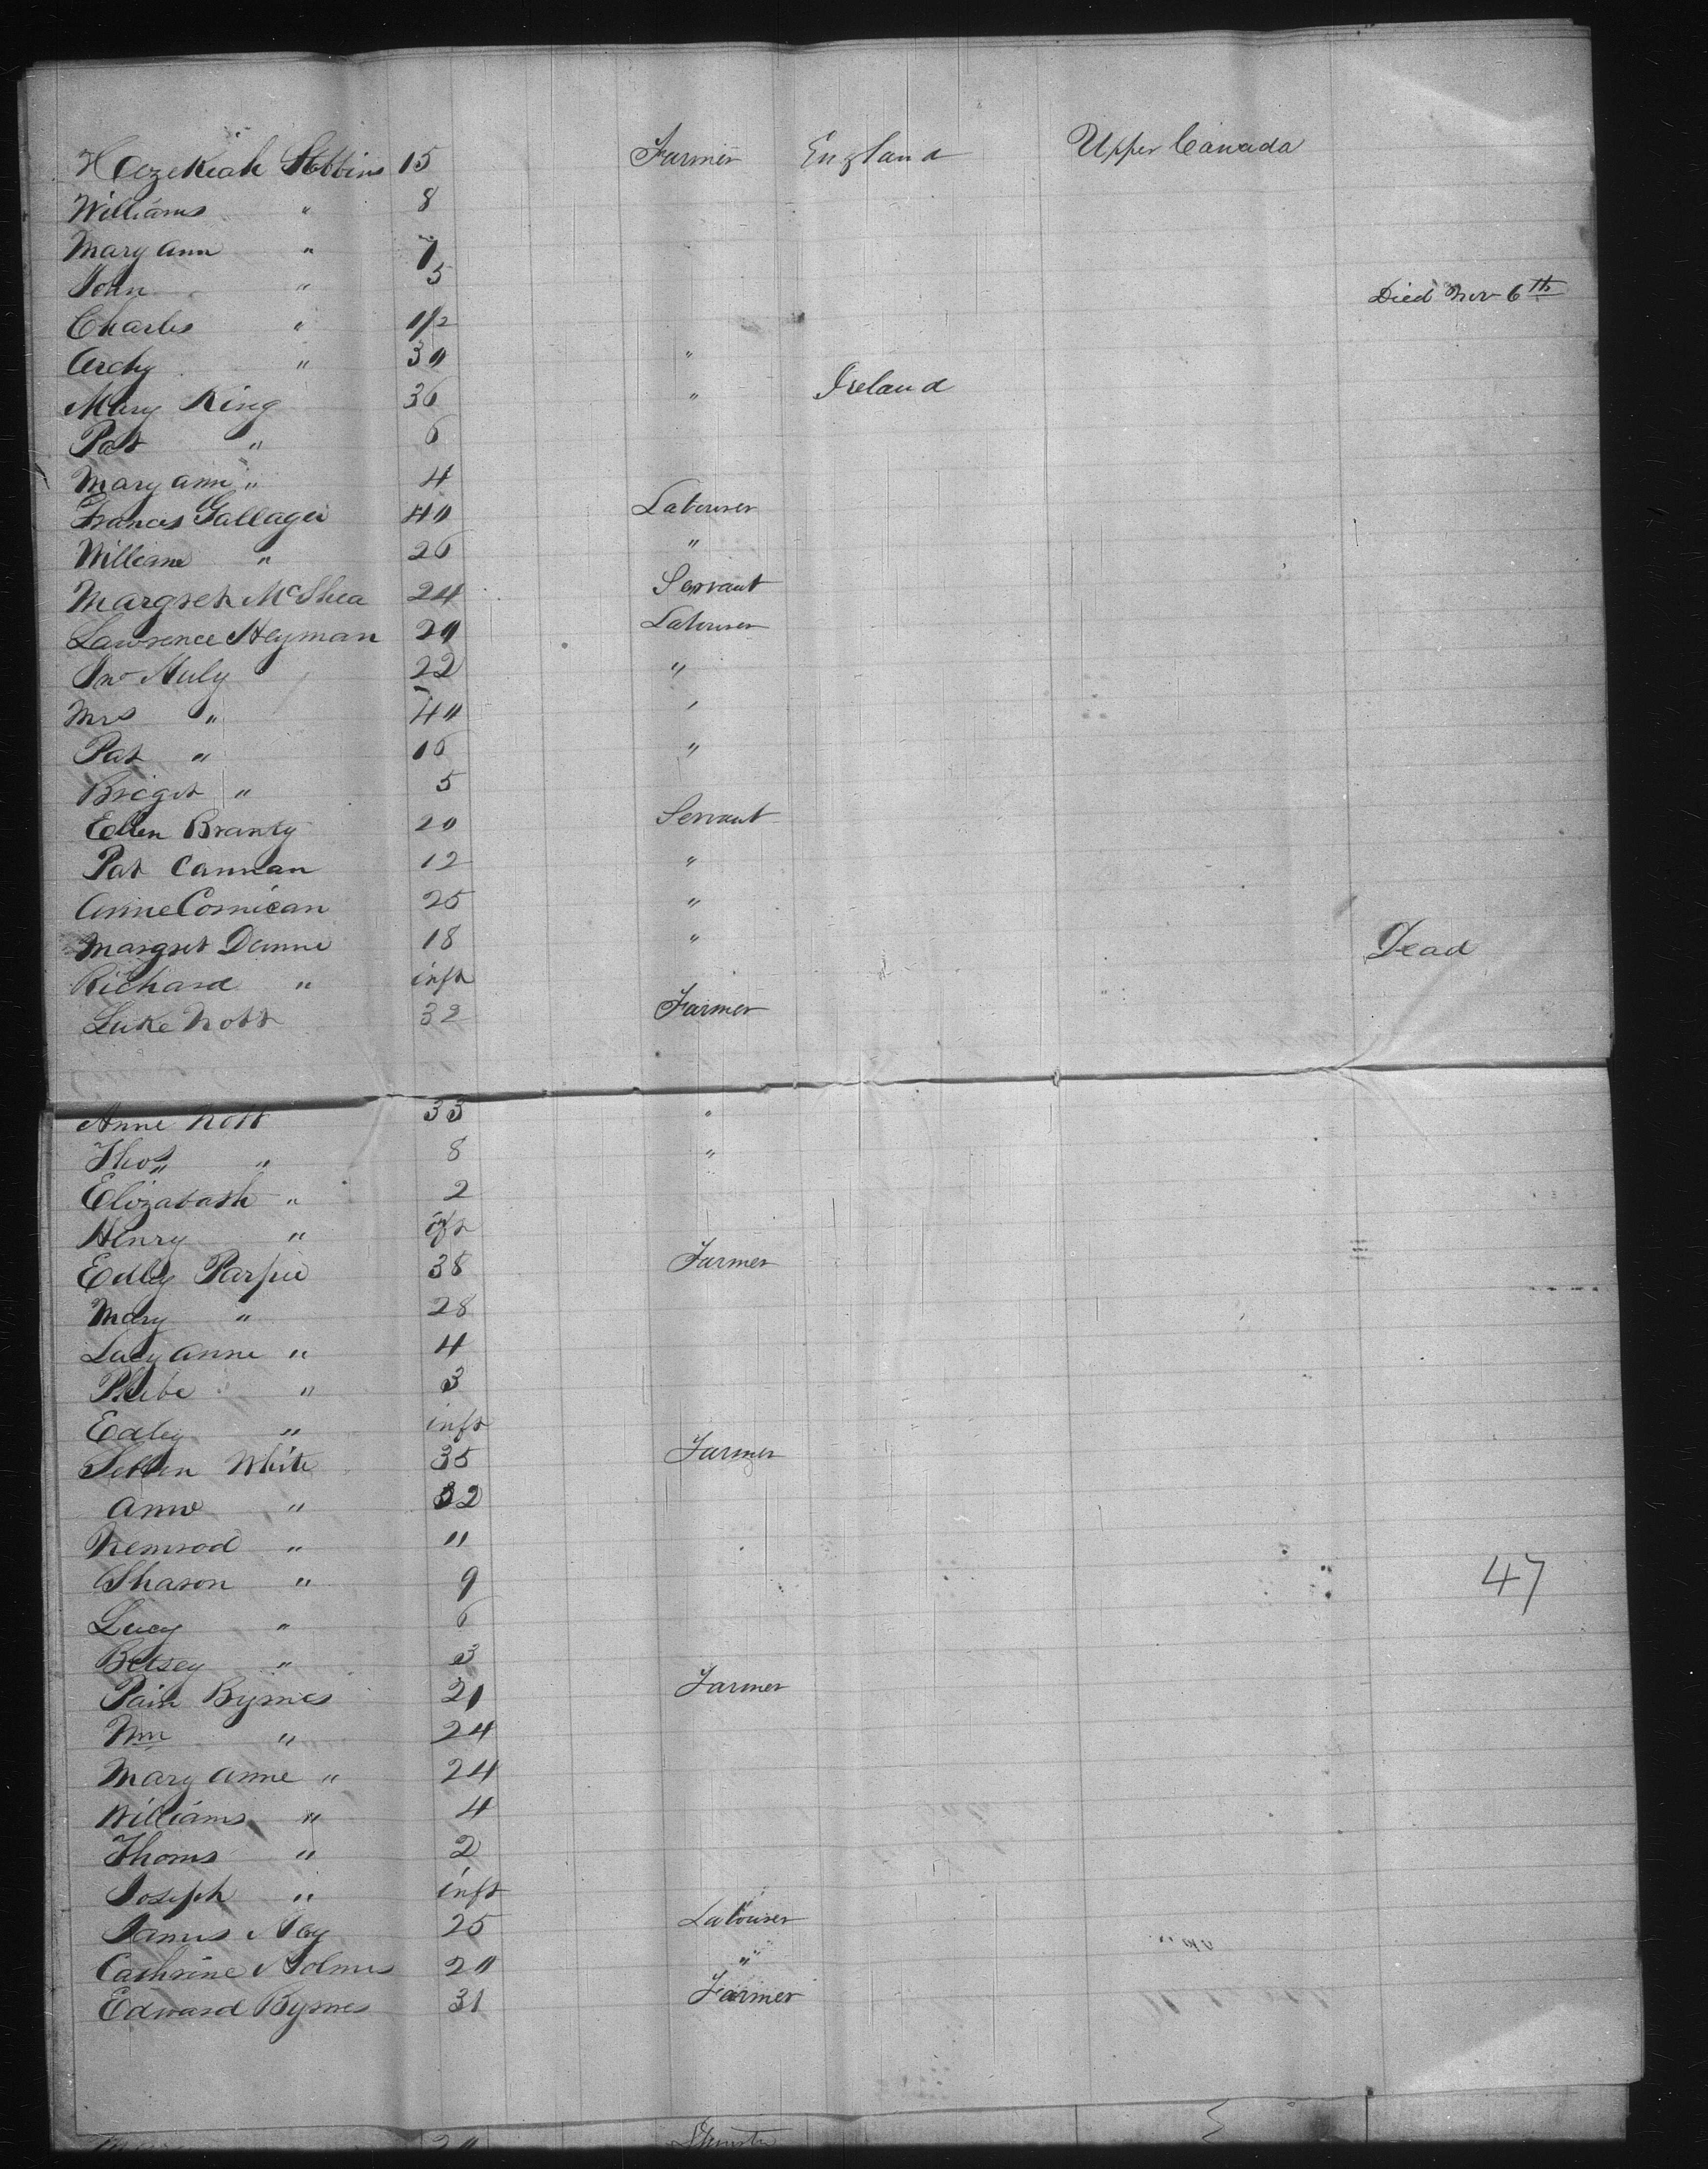 Hezekiah Stobbins 15 Farmer England Upper Canada
Williams " 8
Mary ann " 7
John " 5 Died Nov 6th
Charles " 1/2
Archy " 30 "
Mary King 36 " Ireland
Pat " 6
Mary ann " 4
Frances Gallager 40 Labourer
William " 26 "
Margret McShea 24 Servant
Lawrence Heyman 20 Labourer
Jno Huly 22 "
Mrs " 40 "
Pat " 16 "
Briget " 5
Ellen Branty 20 Servant
Pat Cannan 12 "
Anne Cornican 25 "
Margret Dunne 18 " Dead
Richard " inft
Luke Nott 32 Farmer
Anne Nott 33 "
Thos " 8 "
Elizabath " 2
Henry " ift
Edley Parpie 38 Farmer
Mary " 28
Lucy Anne " 4
Phebe " 3
Edley " inft
White 35 Farmer
Anne " 32
Nemrod " 11
Sharon " 9 47
Lucy " 6
Betsey " 3
Byrnes 21 Farmer
Wm " 24
Mary Anne " 24
Williams " 4
Thoms " 2
Joseph " inft
James Hoy 25 Labourer
Cathrine Holmes 20 "
Edward Byrnes 31 Farmer
20